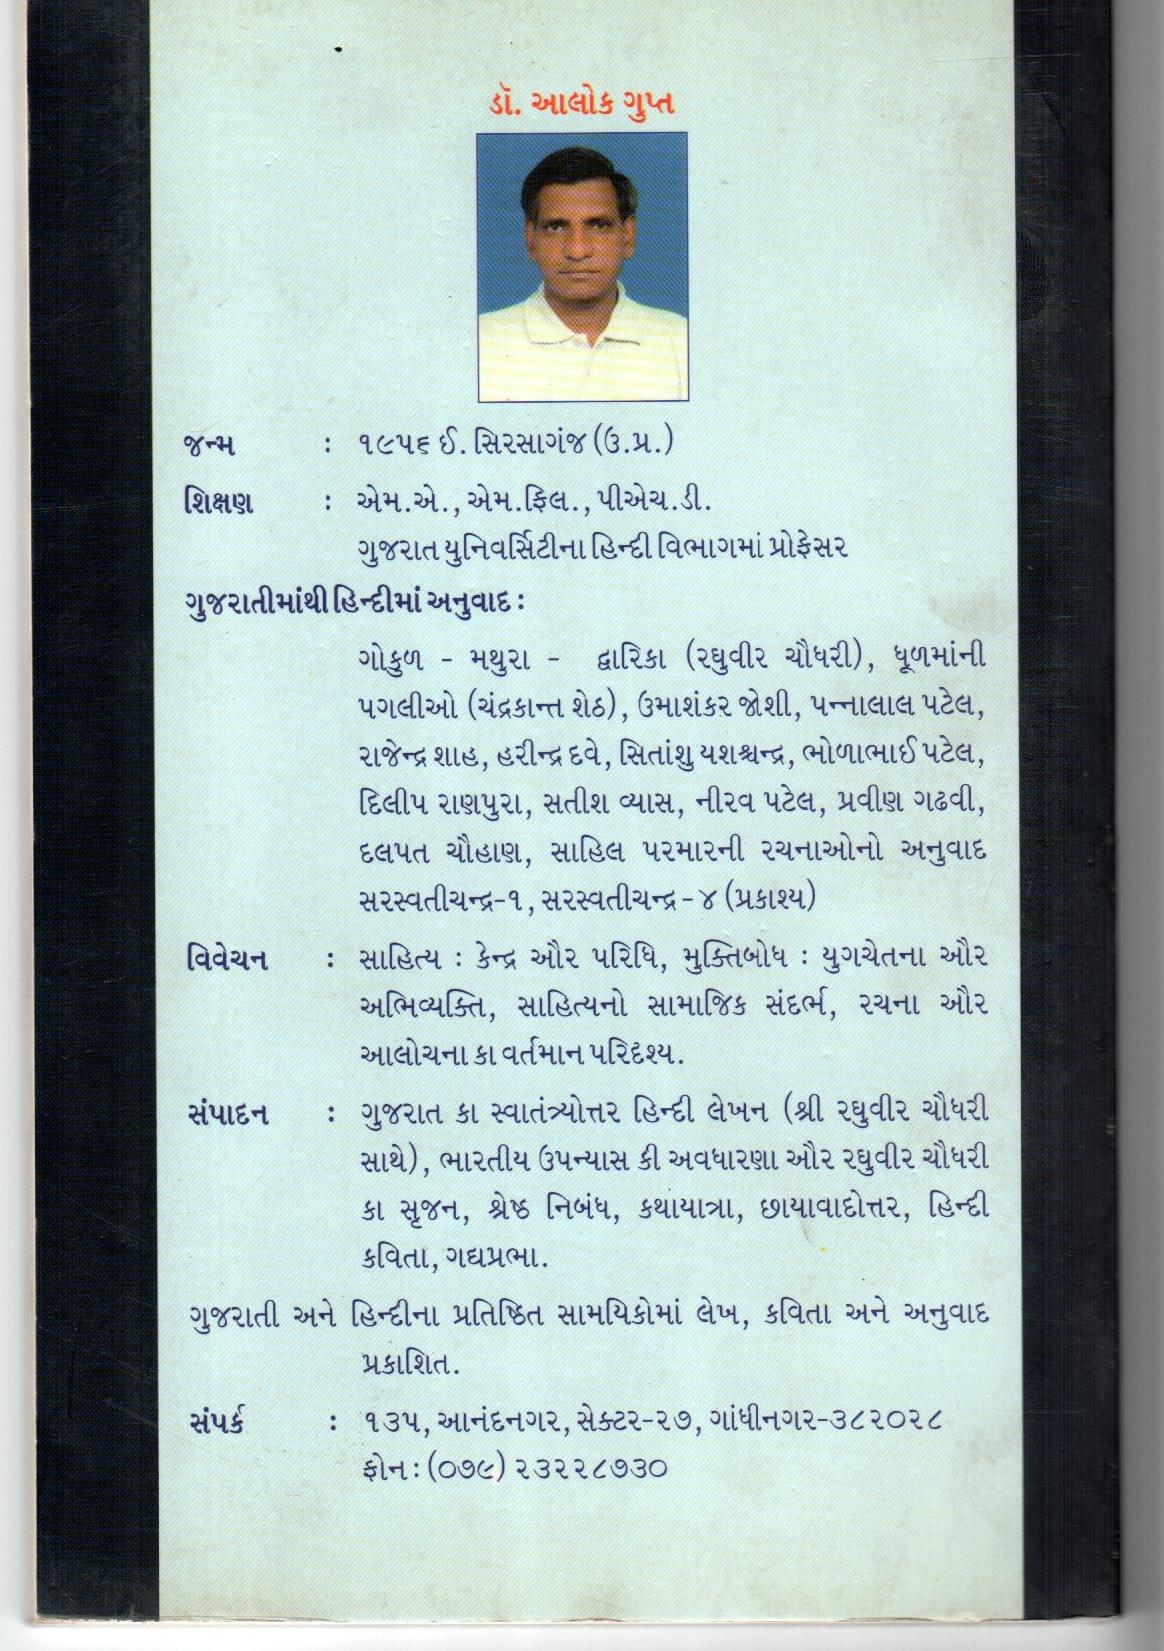 ડૉ. આલોક ગુપ્ત
જન્મ : ૧૯૫૬ ઈ. સિરસાગંજ (ઉ.પ્ર.)
શિક્ષણ : એમ.એ., એમ.ફિલ., પીએચ.ડી.
ગુજરાત યુનિવર્સિટીના હિન્દી વિભાગમાં પ્રોફેસર
ગુજરાતીમાંથી હિન્દીમાં અનુવાદ :
ગોકુળ - મથુરા - દ્વારિકા (રઘુવીર ચૌધરી), ધૂળમાંની
પગલીઓ (ચંદ્રકાન્ત શેઠ), ઉમાશંકર જોશી, પન્નાલાલ પટેલ,
રાજેન્દ્ર શાહ, હરીન્દ્ર દવે, સિતાંશુ યશશ્ચન્દ્ર, ભોળાભાઈ પટેલ,
દિલીપ રાણપુરા, સતીશ વ્યાસ, નીરવ પટેલ, પ્રવીણ ગઢવી,
દલપત ચૌહાણ, સાહિલ પરમારની રચનાઓનો અનુવાદ
સરસ્વતીચન્દ્ર-૧, સરસ્વતીચન્દ્ર - ૪ (પ્રકાશ્ય)
વિવેચન : સાહિત્ય : કેન્દ્ર ઔર પરિધિ, મુક્તિબોધ : યુગચેતના ઔર
અભિવ્યક્તિ, સાહિત્યનો સામાજિક સંદર્ભ, રચના ઔર
આલોચના કા વર્તમાન પરિદૃશ્ય.
સંપાદન : ગુજરાત કા સ્વાતંત્ર્યોત્તર હિન્દી લેખન (શ્રી રઘુવીર ચૌધરી
સાથે), ભારતીય ઉપન્યાસ કી અવધારણા ઔર રઘુવીર ચૌધરી
કા સૃજન, શ્રેષ્ઠ નિબંધ, કથાયાત્રા, છાયાવાદોત્તર, હિન્દી
કવિતા, ગદ્યપ્રભા.
ગુજરાતી અને હિન્દીના પ્રતિષ્ઠિત સામયિકોમાં લેખ, કવિતા અને અનુવાદ
પ્રકાશિત.
સંપર્ક : ૧૩૫, આનંદનગર, સેક્ટર-૨૭, ગાંધીનગર-૩૮૨૦૨૮
ફોન : (૦૭૯) ૨૩૨૨૮૭૩૦